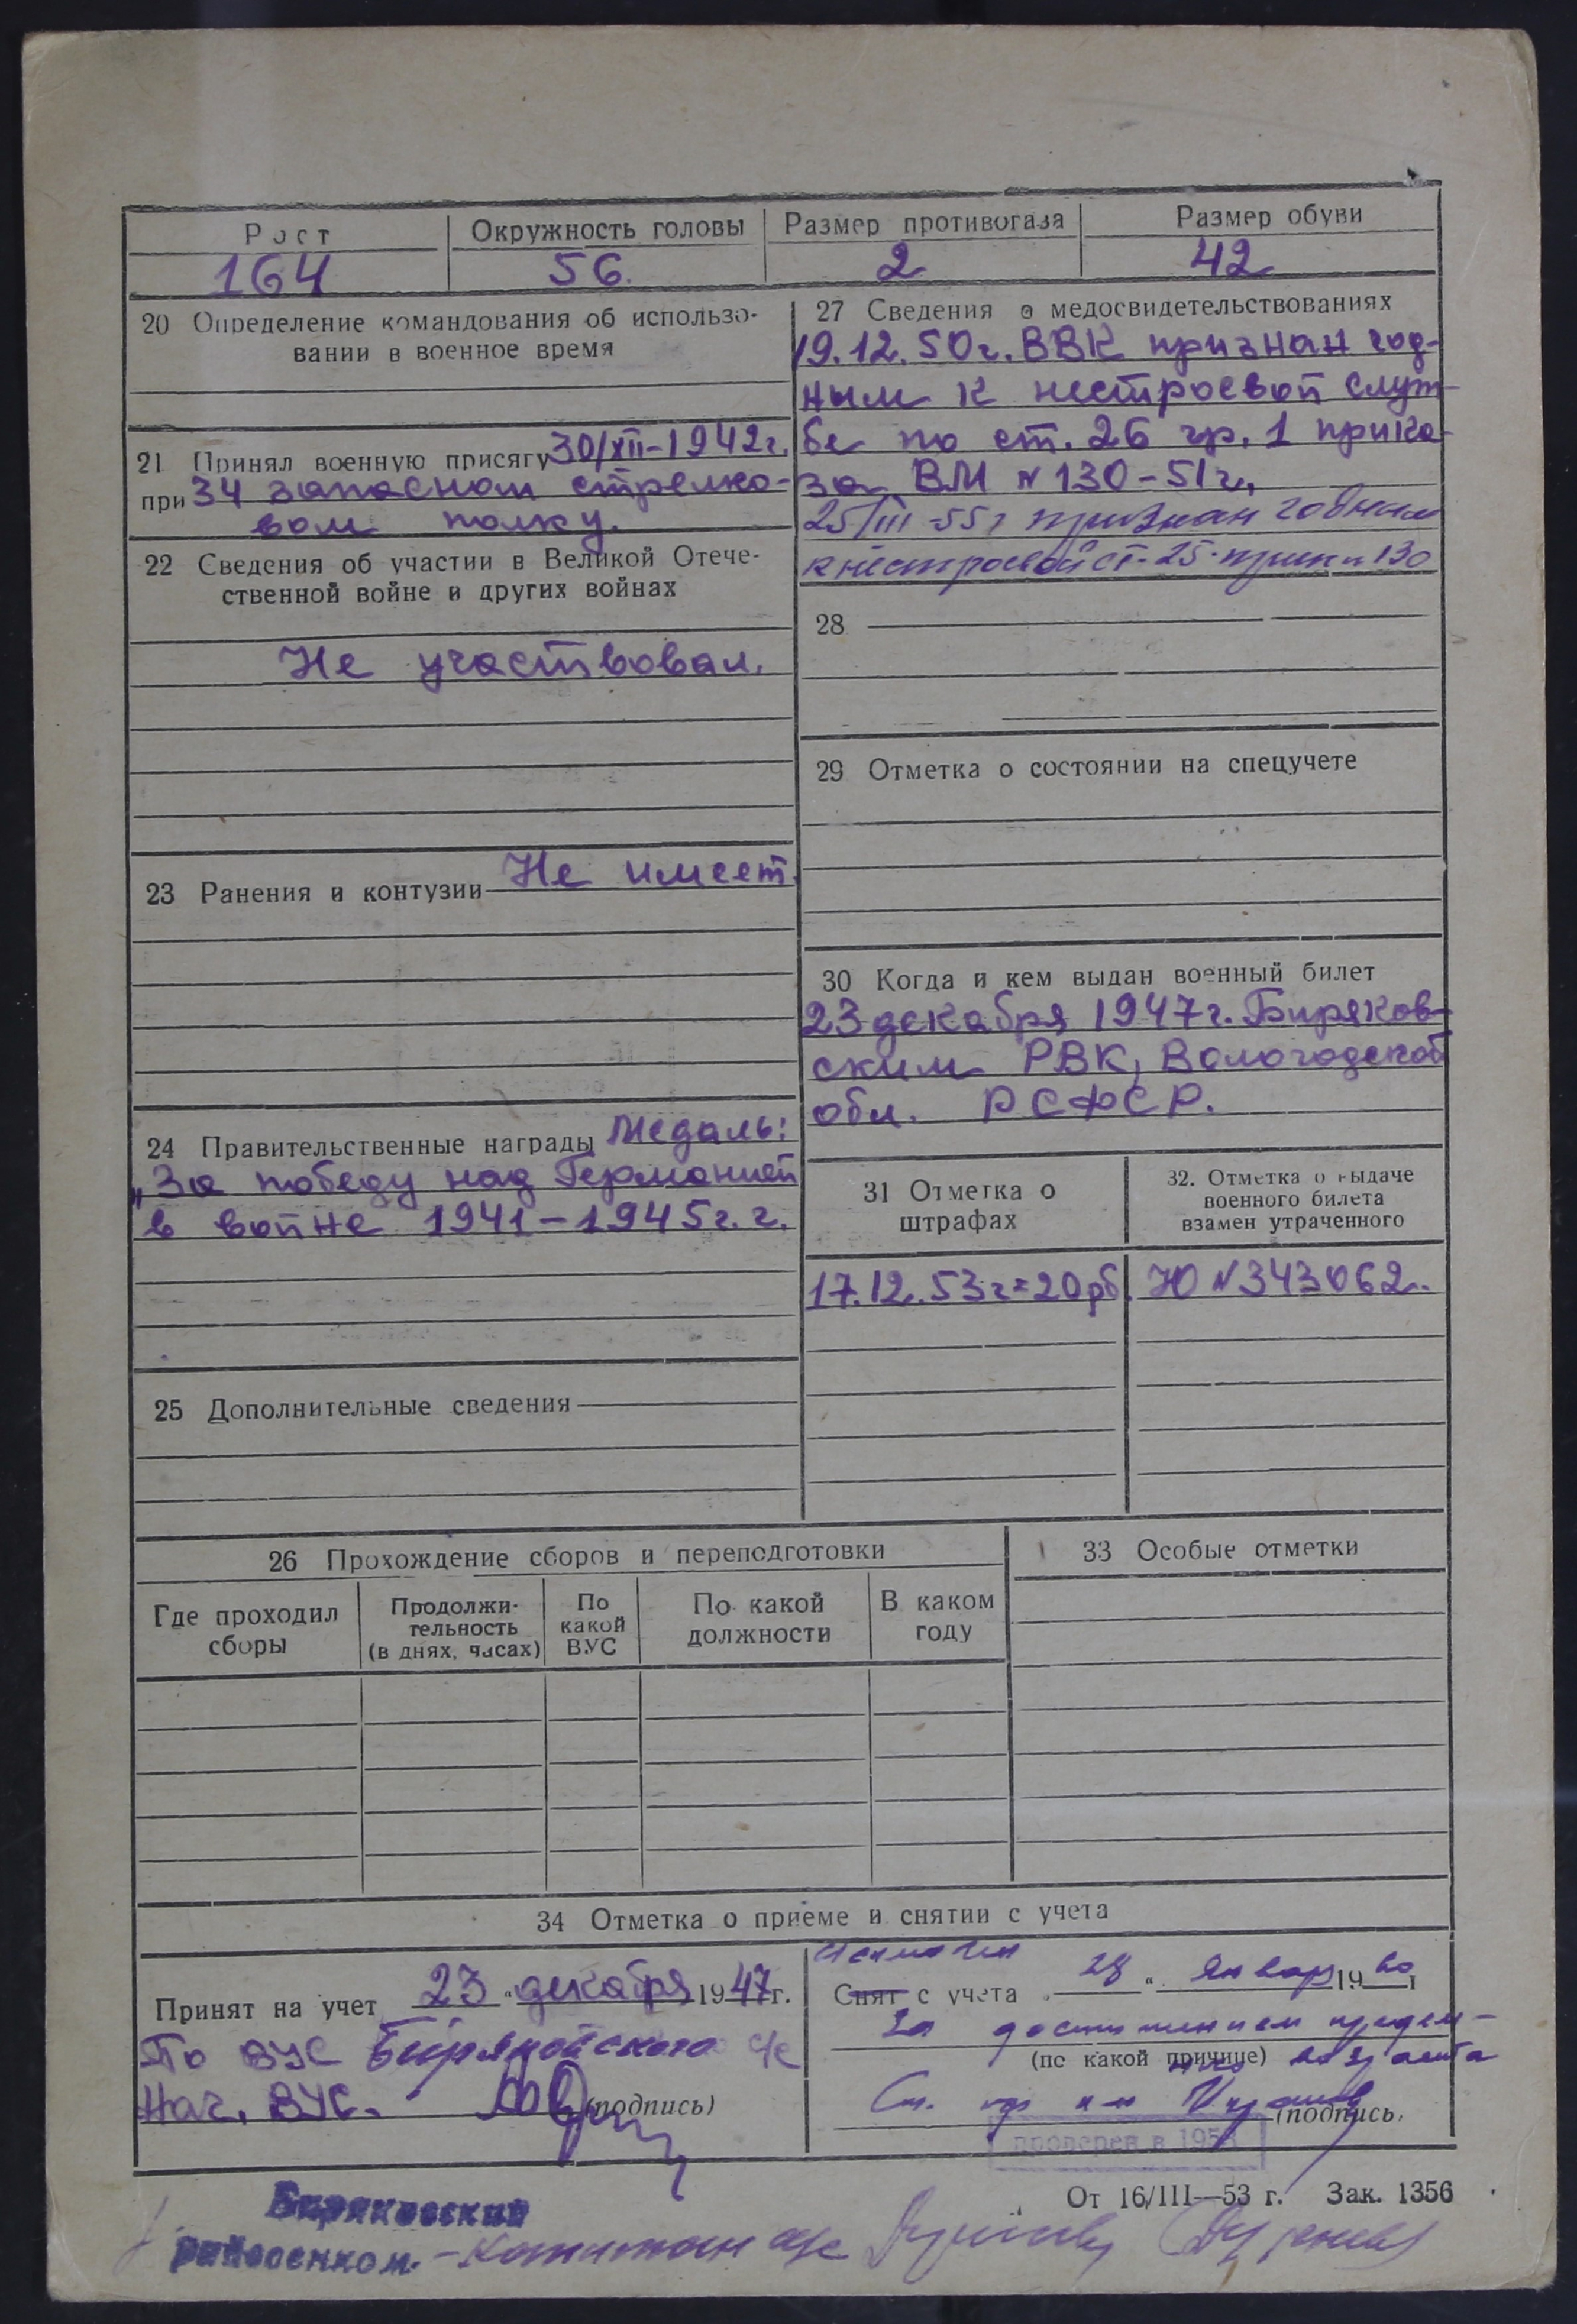 Рост Окружность головы Размер противогаза Размер обуви
164 56. 2 42
20 Определение командования об использо-
вании в военное время
21 Принял военную присягу 30/XII-1942г.
при 34 запасном стрелко-
вом полку.
22 Сведения об участии в Великой Отече-
ственной войне и других войнах
Не участвовал.
23 Ранения и контузии Не имеет.
24 Правительственные награды Медаль:
„За победу над Германией
в войне 1941-1945г.г.
25 Дополнительные сведения
27 Сведения о медосвидетельствованиях
19.12.50г. ВВК признан год-
ным к нестроевой служ-
бе по ст. 26 гр. 1 прика-
за ВМ N 130-51г.
25/III 55г признан годным
к нестроевой ст. 25 130
28
29 Отметка о состоянии на спецучете
30 Когда и кем выдан военный билет
23 декабря 1947г. Биряков-
ским РВК, Вологодской
обл. РСФСР.
31 Отметка о
штрафах
17.12.53г=20рб.
32. Отметка о выдаче
военного билета
взамен утраченного
Ю N 343062.
26 Прохождение сборов и переподготовки
Где проходил
сборы
Продолжи-
тельность
(в днях, часах)
По
какой
ВУС
По какой
должности
В каком
году
33 Особые отметки
34 Отметка о приеме и снятии с учета
Принят на учет 23 " декабря 1947г.
По ВУС Бирякойского с/с
Нач. ВУС. (подпись)
Снят с учета 28 " январ 1960 г
За достижением предель-
(по какой причине) ного возраста
(подпись)
проверен в 195
От 16/III—53 г. Зак. 1356
Биряковский
райвоенком. - Капитан а/с